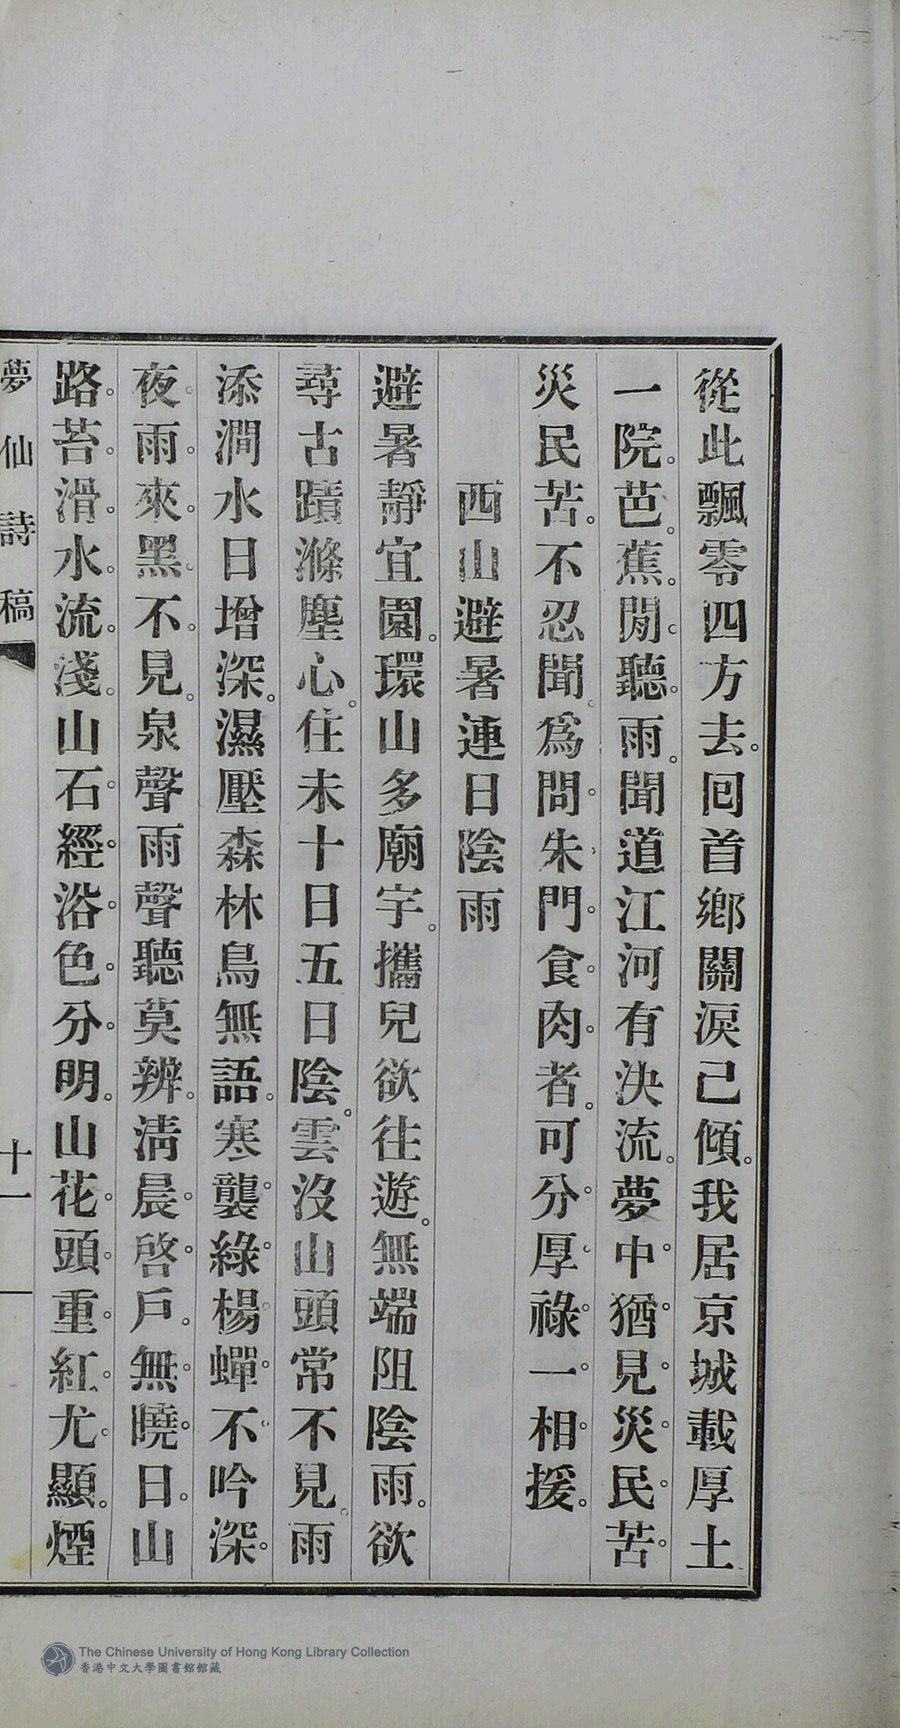 從此飄零四方去。回首鄉關淚己傾。我居京城載厚土
一院。芭。蕉。閒。聽。雨。聞道江河有決流。夢中。猶。見。災。民。苦。
災民苦。不忍聞。爲問。朱、門。食。肉。者。可分。厚。祿。一。相。援。
西山避暑連日陰雨
避暑靜宜園。環山多廟宇。攜兒欲往遊。無端阻陰雨。欲
尋古蹟滌塵心。住未十日五日陰。雲沒山頭常不見。雨
添澗水日增深。濕壓森林鳥無語。寒襲。綠。楊。蟬。不。吟深。
夜。雨。來。黑。不。見。泉聲雨聲聽莫辨。清晨。啓。戶。無。曉。日。山
路。苔。滑。水。流。淺。山石。經。浴。色。分。明。山花。頭。重。紅。尤。顯。煙
夢仙詩稿
十一
The Chinese University of Hong Kong Library Collection
香港中文大學圖書館館藏